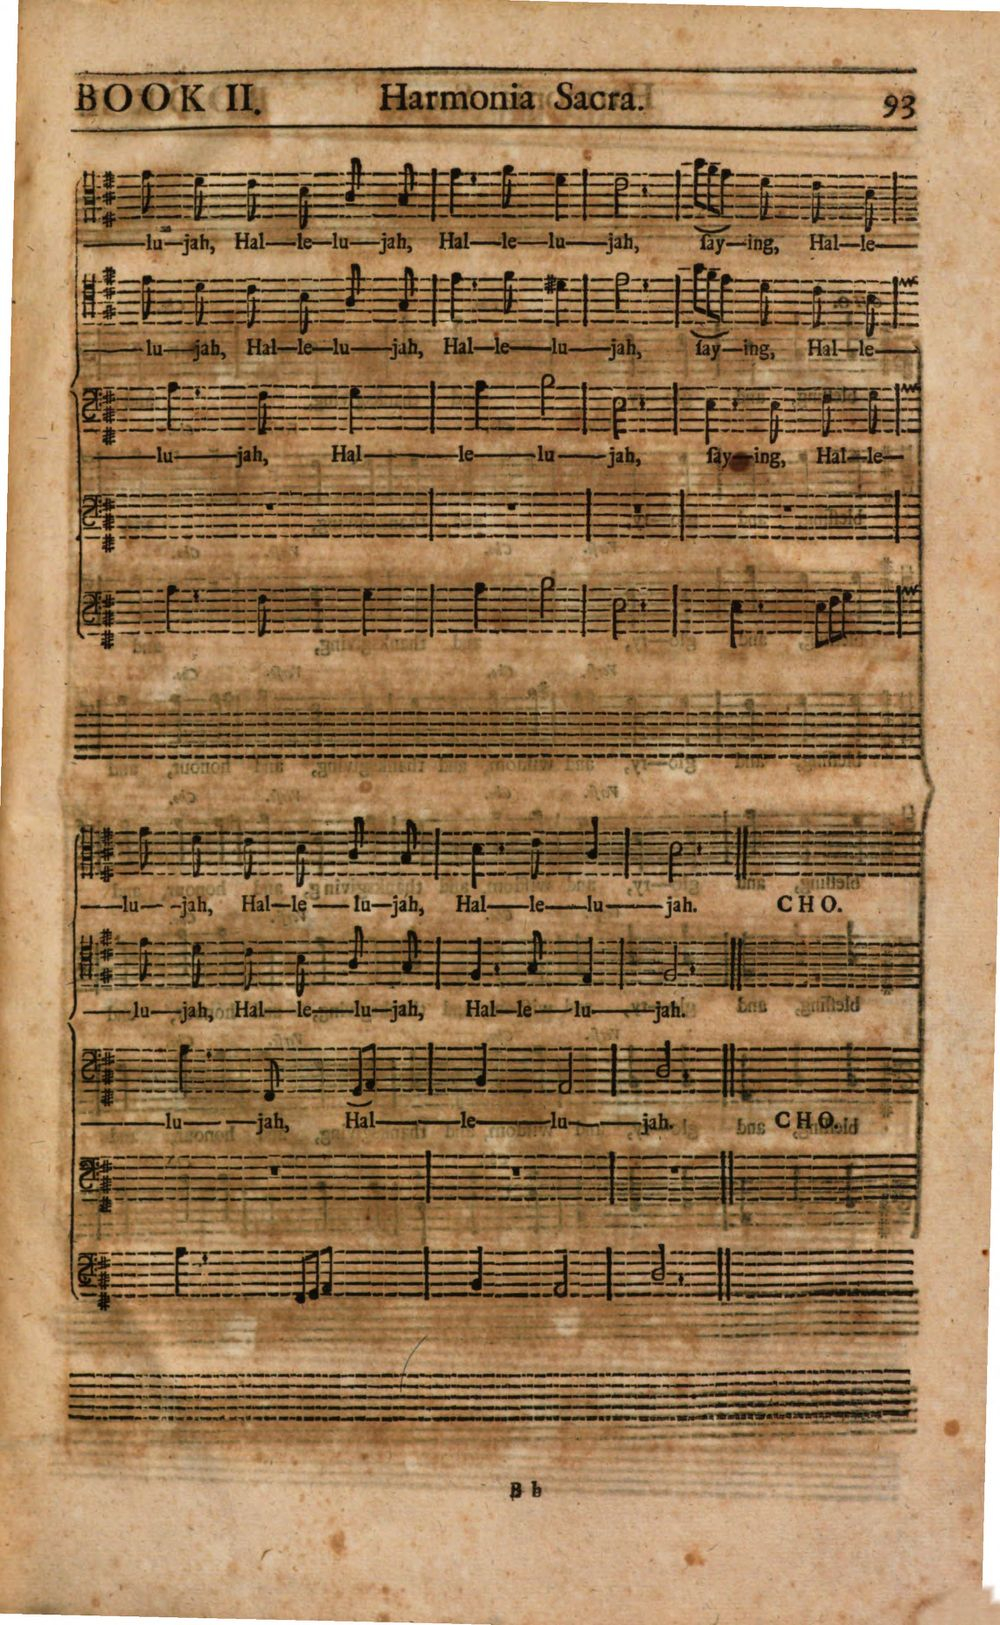 BOOK II. Harmonia Sacra. 93
——lu—jah, Hal——le—lu——jah, Hal——le——lu——jah, ſay—ing, Hal—le——
——lu——jah, Hal—le—lu——jah, Hal—le——lu——jah, ſay—ing, Hal—le——
——lu——jah, Hal————le——lu——jah, ſay—ing, Hal—le—
——lu—-jah, Hal—le——lu—jah, Hal——le——lu——jah. CHO.
——lu——jah, Hal——le——lu—jah, Hal—le——lu——jah.
——lu——jah, Hal———le———lu———jah. CHO.
B b